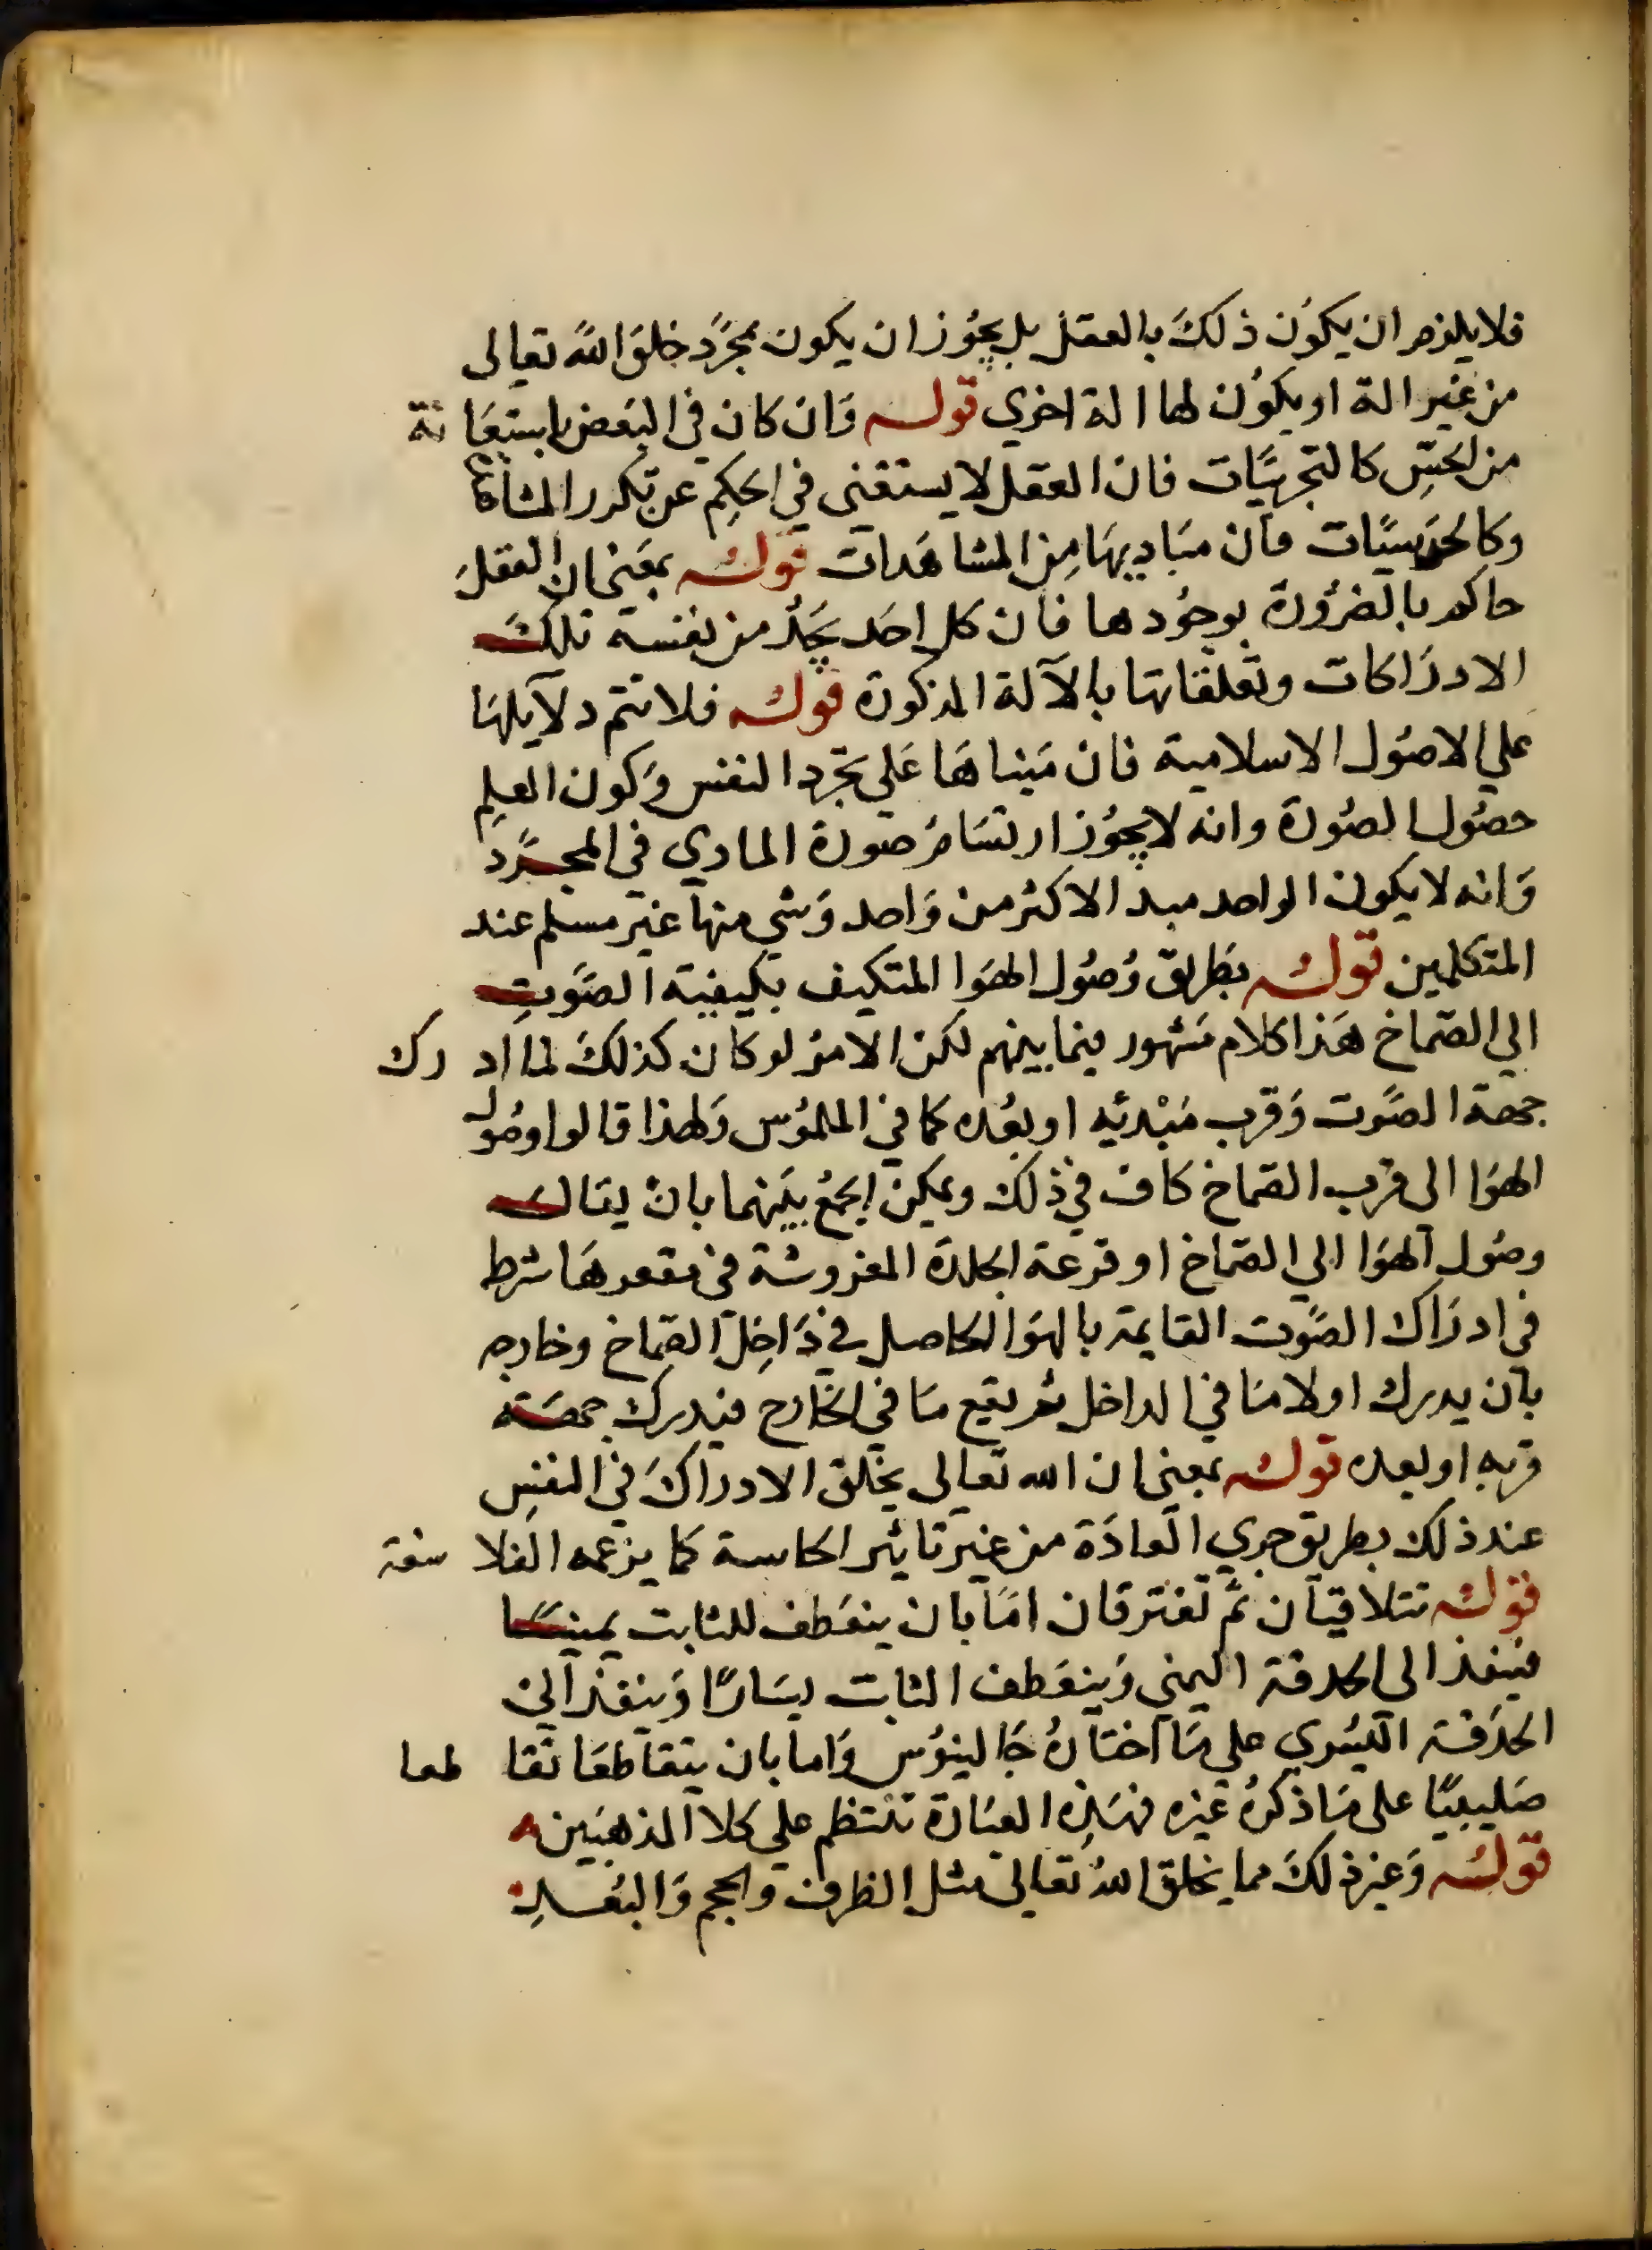 فلا يلزم ان يكون ذلك بالعقل بل يجوز ان يكون بمجرد خلق الله تعالى
من غير الة او يكون لها الة اخري قوله وان كان في البعض باستعانة
من الحس كالتجربيات فان العقل لا يستغنى في الحكم عن تكرر المشاهدة
وكالحدسيات فان مباديها من المشاهدات قوله بمعنى ان العقل
حاكم بالضرورة بوجودها فان كل احد يجد من نفسه تلك
الادراكات وتعلقاتها بالآلة المذكورة قوله فلا تتم دلايلها
علي الاصول الاسلامية فان مبناها علي تجرد النفس وكون العلم
حصول الصورة وانه لا يجوز ارتسام صورة المادي في المجرد
وانه لا يكون الواحد مبدا لاكثر من واحد وشي منها غير مسلم عند
المتكلمين قوله بطريق وصول الهوا المتكيف بكيفية الصوت
الي الصماخ هذا كلام مشهور فيما بينهم لكن الامر لو كان كذلك لما ادرك
جهة الصوت وقرب مبدئه او بعده كما في الملموس ولهذا قالوا وصول
الهوا الى قرب الصماخ كاف في ذلك ويمكن الجمع بينهما بان يقال
وصول الهوا الي الصماخ او قرعة الجلدة المفروشة في مقعرها شرط
في ادراك الصوت القايمة بالهوا الحاصل في داخل الصماخ وخارجه
بان يدرك اولا ما في الداخل ثم يقع ما في الخارج فيدرك جهته
قربه او بعده قوله بمعنى ان الله تعالى يخلق الادراك في النفس
عند ذلك بطريق جري العادة من غير تاثير الحاسة كما يزعمه الفلاسفة
قوله تتلاقيان ثم تفترقان اما بان ينعطف للثابت يمينا
فينفذ الى الحدقة اليمني وينعطف الثابت يسارا وينفذ الى
الحدقة اليسري علي ما اختاره جالينوس واما بان يتقاطعا تقاطعا
صليبيا على ما ذكره غيره فهذه العبارة تنتظم علي كلا المذهبين
قوله وغير ذلك مما يخلق الله تعالى مثل الظرف والحجم والبعد